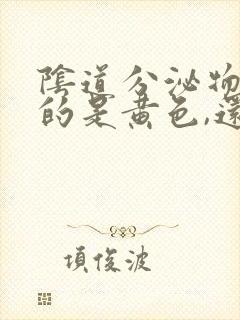 陰道分泌物
的是黃色,還
項俊波